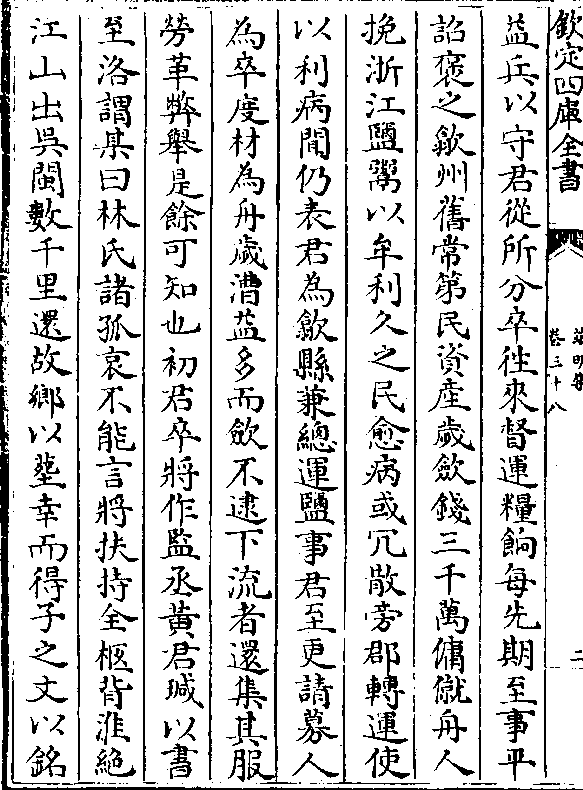 欽定四庫全書
端明集
卷三十八
二
益兵以守君從所分卒徃來督運糧餉每先期至事平
詔褒之歙州舊常第民資産歲斂錢三千萬傭僦舟人
挽浙江鹽鬻以牟利久之民愈病或冗散旁郡轉運使
以利病聞仍表君為歙縣兼總運鹽事君至更請募人
為卒度材為舟歲漕益多而斂不逮下流者還集其服
勞革弊舉是餘可知也初君卒將作監丞黄君瑊以書
至洛謂某曰林氏諸孤哀不能言將扶持全柩背淮絶
江山出吳閩數千里還故鄉以塟幸而得子之文以銘